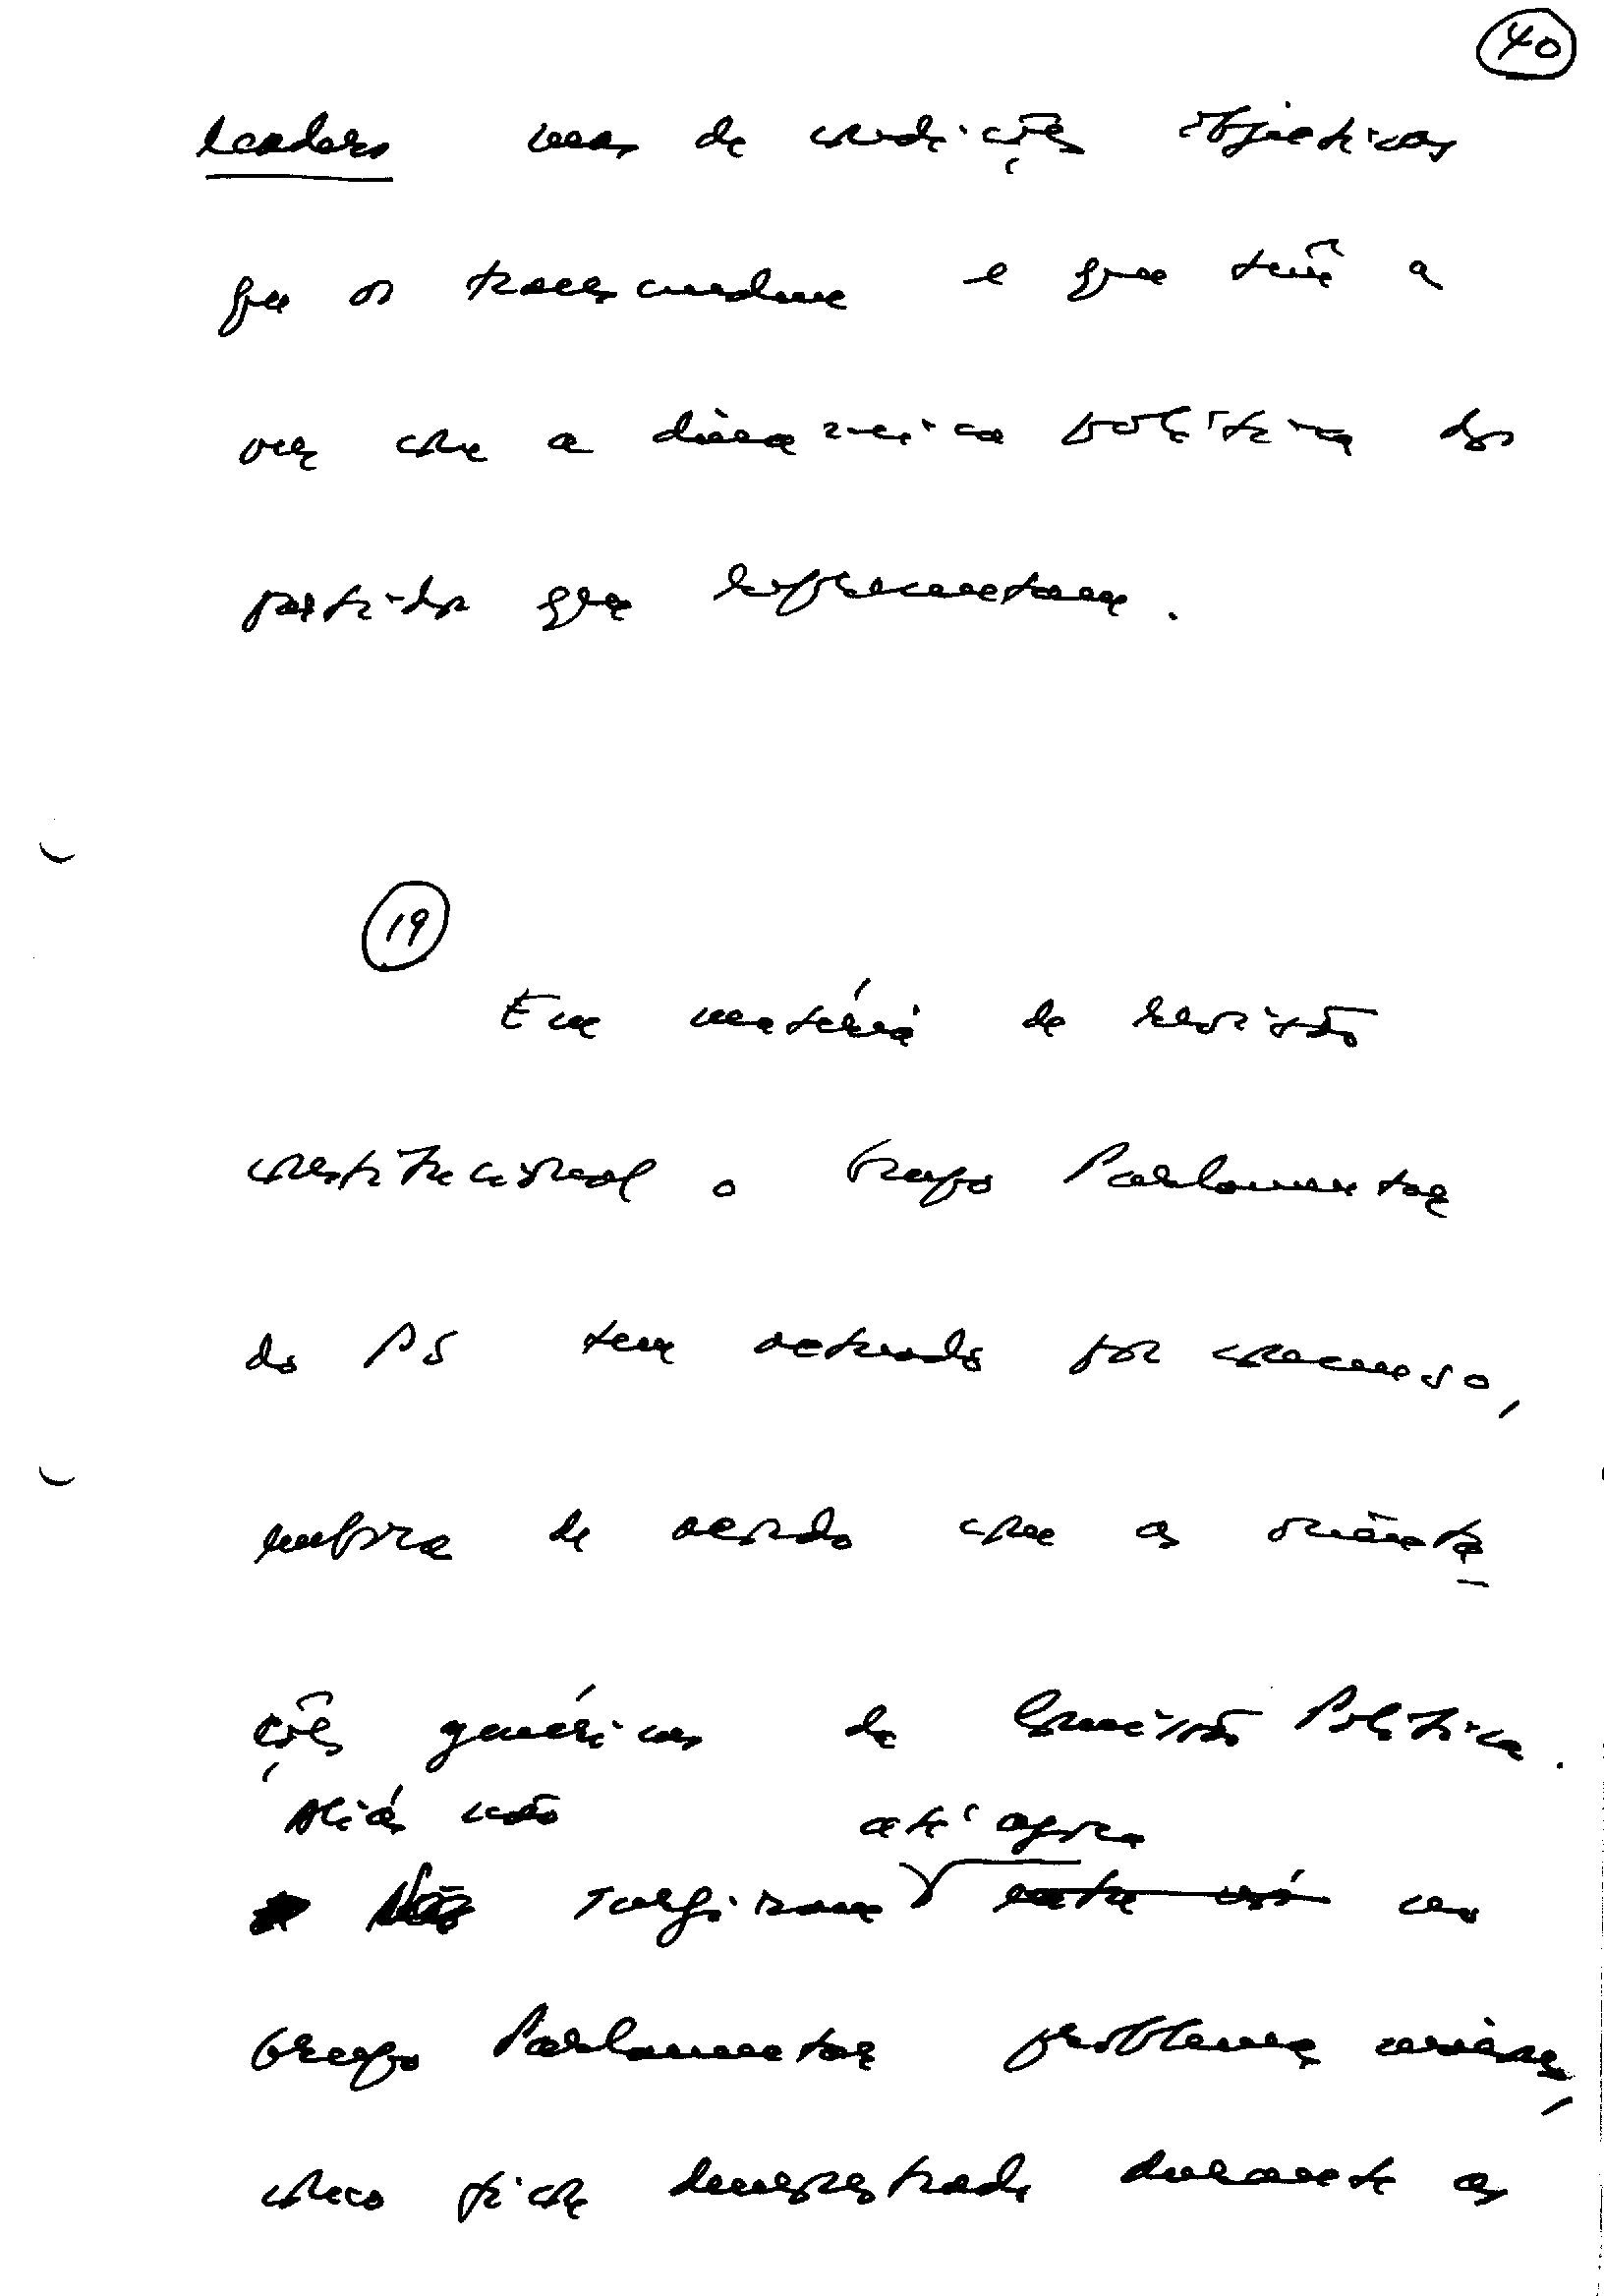 40
leaders mas de condições objectivas
que os transcendem e que têm a
ver com a dinamica política dos
partidos que representam.
19
Em matéria de revisão
constitucional o Grupo Parlamentar
do PS tem actuado por consenso,
embora de acordo com as orienta-
ções genéricas da Comissão Política.
Aliás não até agora
Não surgiram entre nós no
Grupo Parlamentar problemas
como ficou demonstrado durante as